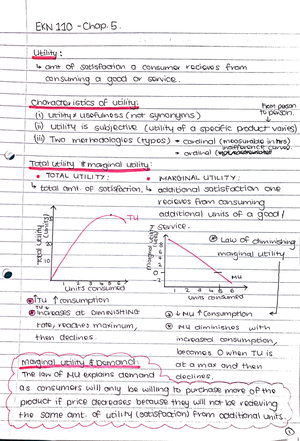 EKN 110 - Chap. 5.
Utility:
↳ amt of satisfaction a consumer recieves from
consuming a good or service.
Characteristics of utility:
(i) Utility ≠ usefulness (not synonyms)
from person
to person.
(ii) Utility is subjective (utility of a specific product varies)
(iii) Two methodologies (types) → cardinal (measurable in hrs)
→ ordinal
indifference curve
Total utility & marginal utility:
• TOTAL UTILITY:
↳ total amt. of satisfaction.
• MARGINAL UTILITY:
↳ additional satisfaction one
recieves from consuming
additional units of a good/
service.
Total utility (units)
TU
1 2 3 4 5 6
Units consumed
Marginal utility (units)
8
6
4
2
0
-2
MU
1 2 3 4 5 6
Units consumed
Law of diminishing
marginal utility
↑TU ↑consumption
TU
Increases at DIMINISHING
rate, reaches maximum,
then declines.
↓ MU ↑consumption
MU diminishes with
increased consumption,
becomes 0 when TU is
at a max and then
declines.
Marginal utility & Demand:
The law of MU explains demand
as consumers will only be willing to purchase more of the
product if price decreases because they will not be recieving
the same amt. of utility (satisfaction) from additional units.
1